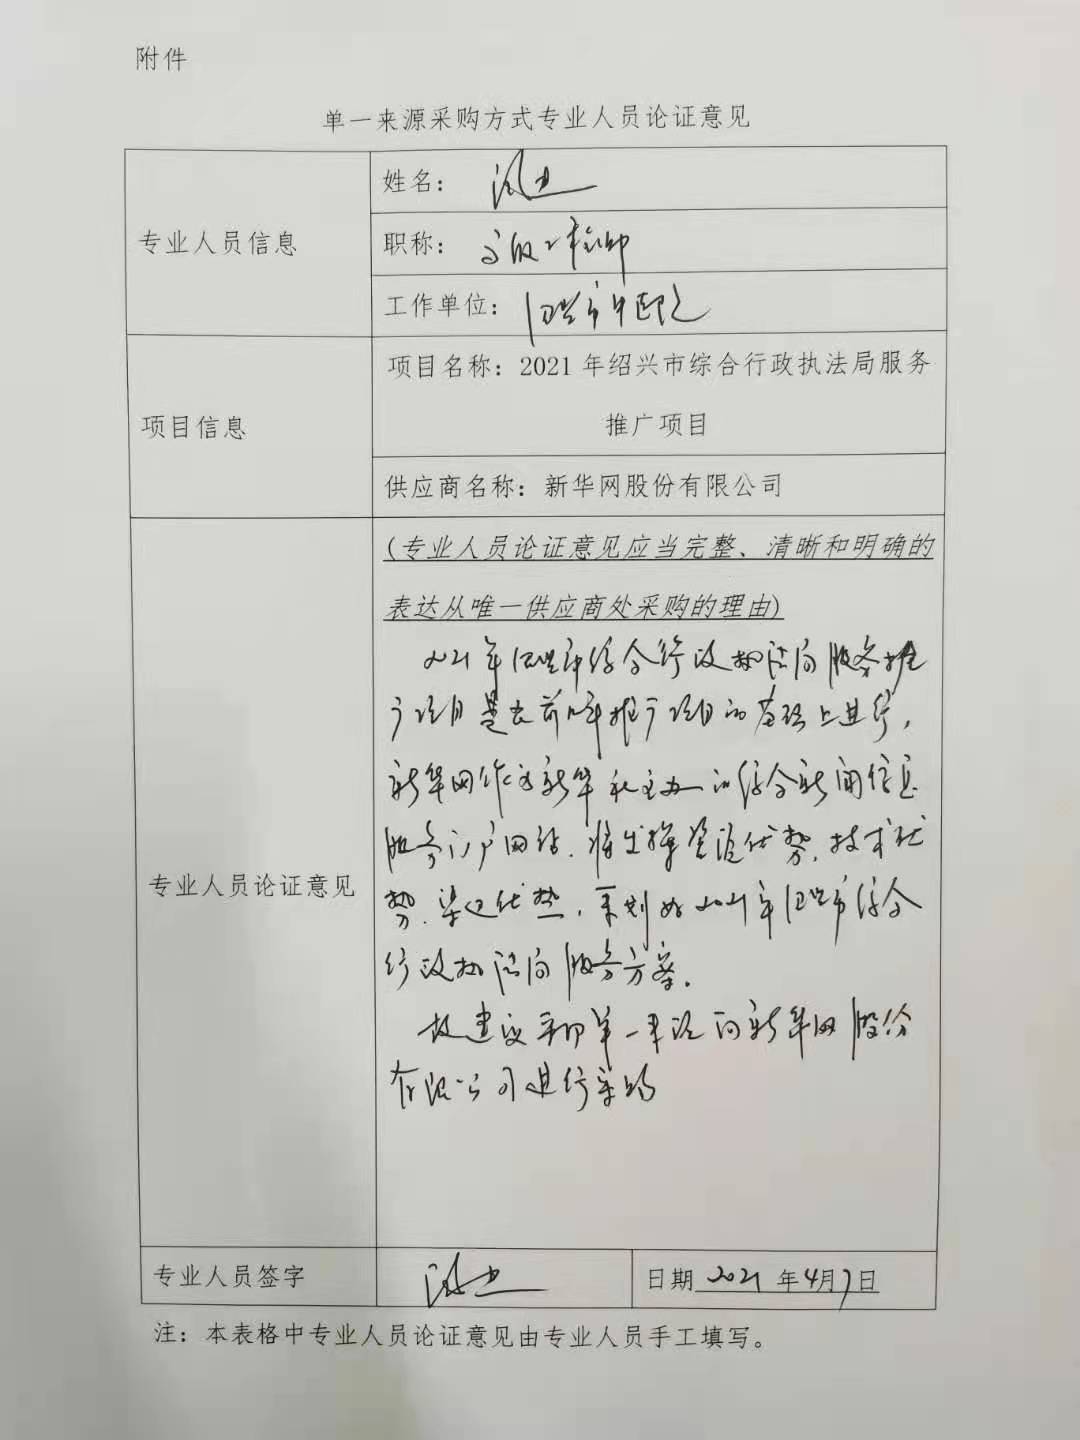 附件
单一来源采购方式专业人员论证意见
专业人员信息
姓名：
职称：高级工程师
工作单位：绍兴市
项目信息
项目名称：2021年绍兴市综合行政执法局服务
推广项目
供应商名称：新华网股份有限公司
专业人员论证意见
(专业人员论证意见应当完整、清晰和明确的
表达从唯一供应商处采购的理由)
2021年绍兴市综合行政执法局服务推
广项目是在前几年推广项目的基础上进行，
新华网作为新华社主办的综合新闻信息
服务门户网站，将发挥资源优势、技术优
势、渠道优势，策划好2021年绍兴市综合
行政执法局服务方案。
故建议采用单一来源向新华网股份
有限公司进行采购
专业人员签字
日期 2021年4月7日
注：本表格中专业人员论证意见由专业人员手工填写。